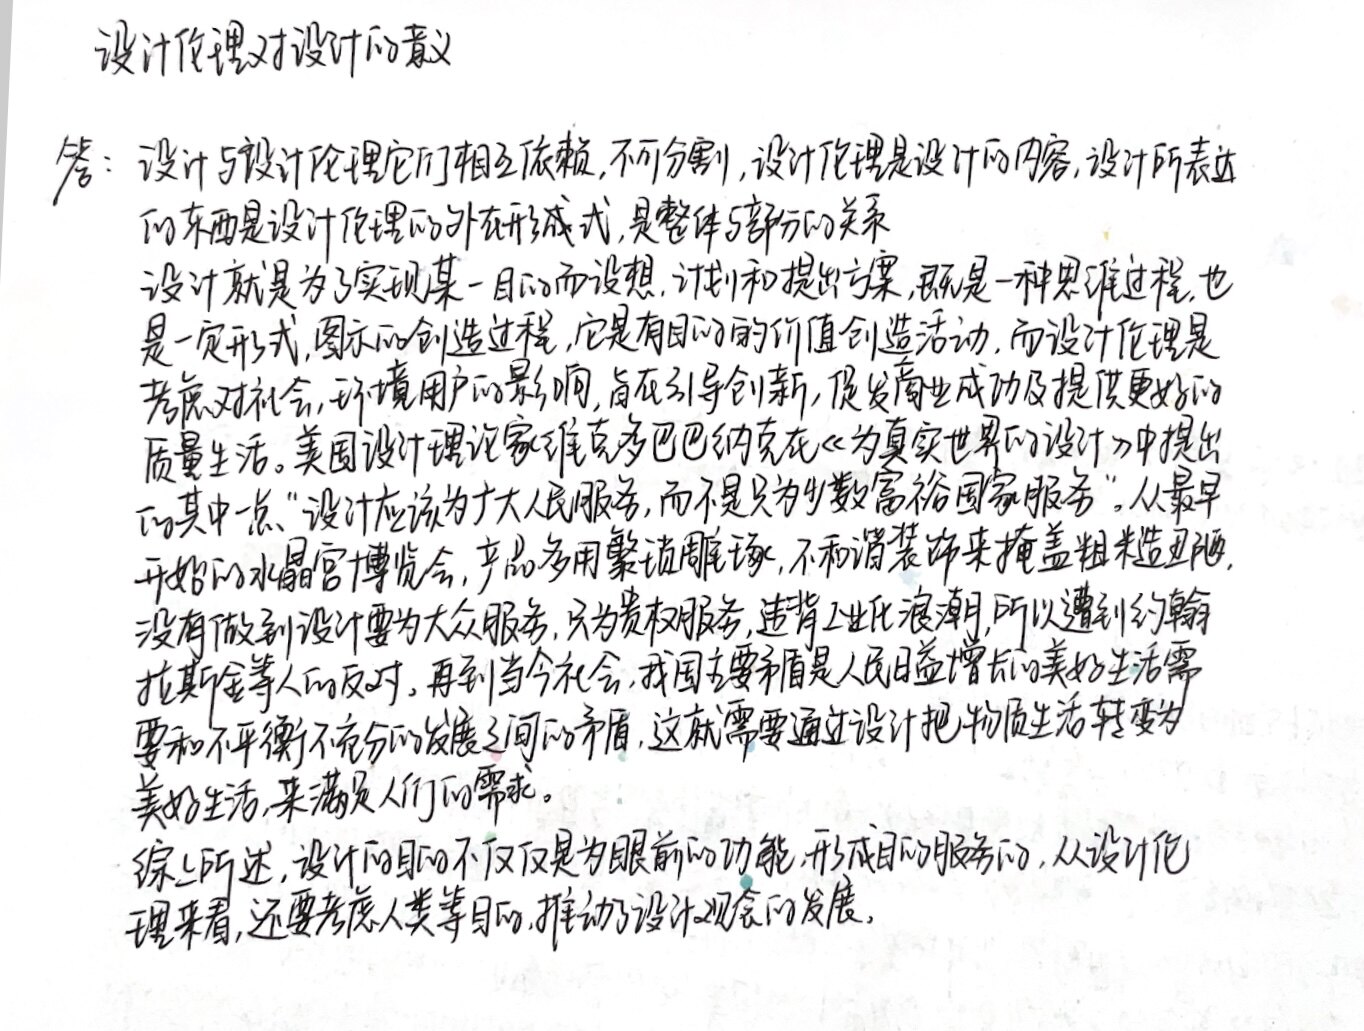 设计伦理对设计的意义
答：设计与设计伦理它们相互依赖，不可分割，设计伦理是设计的内容，设计所表达
的东西是设计伦理的外在形成式，是整体与部分的关系
设计就是为了实现某一目的而设想、计划和提出方案，既是一种思维过程，也
是一定形式，图示的创造过程，它是有目的的价值创造活动，而设计伦理是
考虑对社会，环境用户的影响，旨在引导创新，促发商业成功及提供更好的
质量生活。美国设计理论家维克多巴巴纳克在《为真实世界的设计》中提出
的其中一点、"设计应该为广大人民服务，而不是只为少数富裕国家服务"。从最早
开始的水晶宫博览会，产品多用繁琐雕琢，不和谐装饰来掩盖粗糙造丑陋，
没有做到设计要为大众服务，只为贵权服务，违背工业化浪潮，所以遭到约翰
拉斯金等人的反对。再到当今社会，我国主要矛盾是人民日益增长的美好生活需
要和不平衡不充分的发展之间的矛盾，这就需要通过设计把物质生活转变为
美好生活，来满足人们的需求。
综上所述，设计的目的不仅仅是为眼前的功能、形成目的服务的，从设计伦
理来看，还要考虑人类等目的，推动了设计观念的发展。